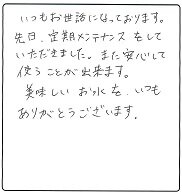 いつもお世話になっております。
先日、定期メンテナンスをして
いただきました。また安心して
使うことが出来ます。
美味しいお水を、いつも
ありがとうございます。